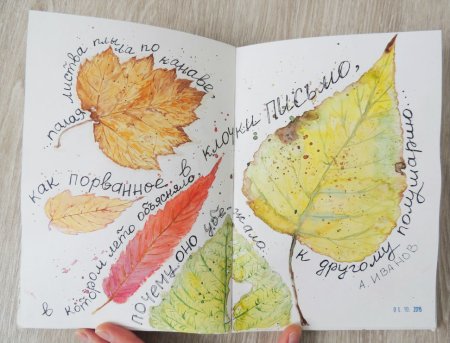 палая листва плыла по канаве,
как порванное в клочки письмо,
в котором лето объясняло,
почему оно убежало
к другому полушарию.
А. ИВАНОВ
01. 10. 2015